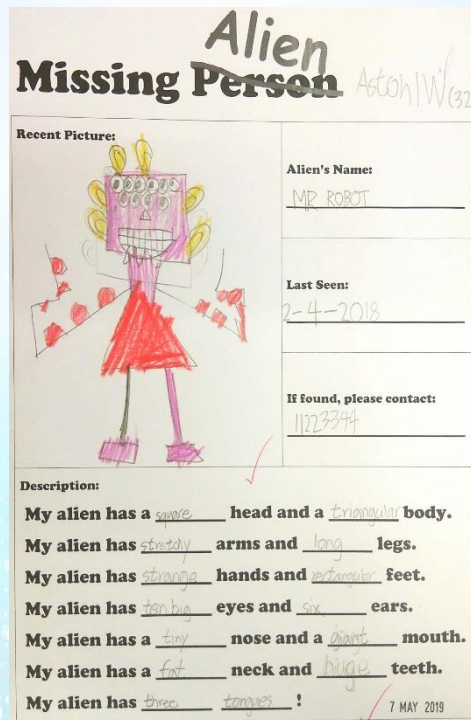 Alien
Missing Person Aston 1W (32
Recent Picture:
Alien's Name:
MR ROBOT
Last Seen:
2-4-2018
If found, please contact:
11223344
Description:
My alien has a square head and a triangular body.
My alien has stretchy arms and long legs.
My alien has strange hands and rectangular feet.
My alien has ten big eyes and six ears.
My alien has a tiny nose and a giant mouth.
My alien has a fat neck and huge teeth.
My alien has three tongues !
7 MAY 2019